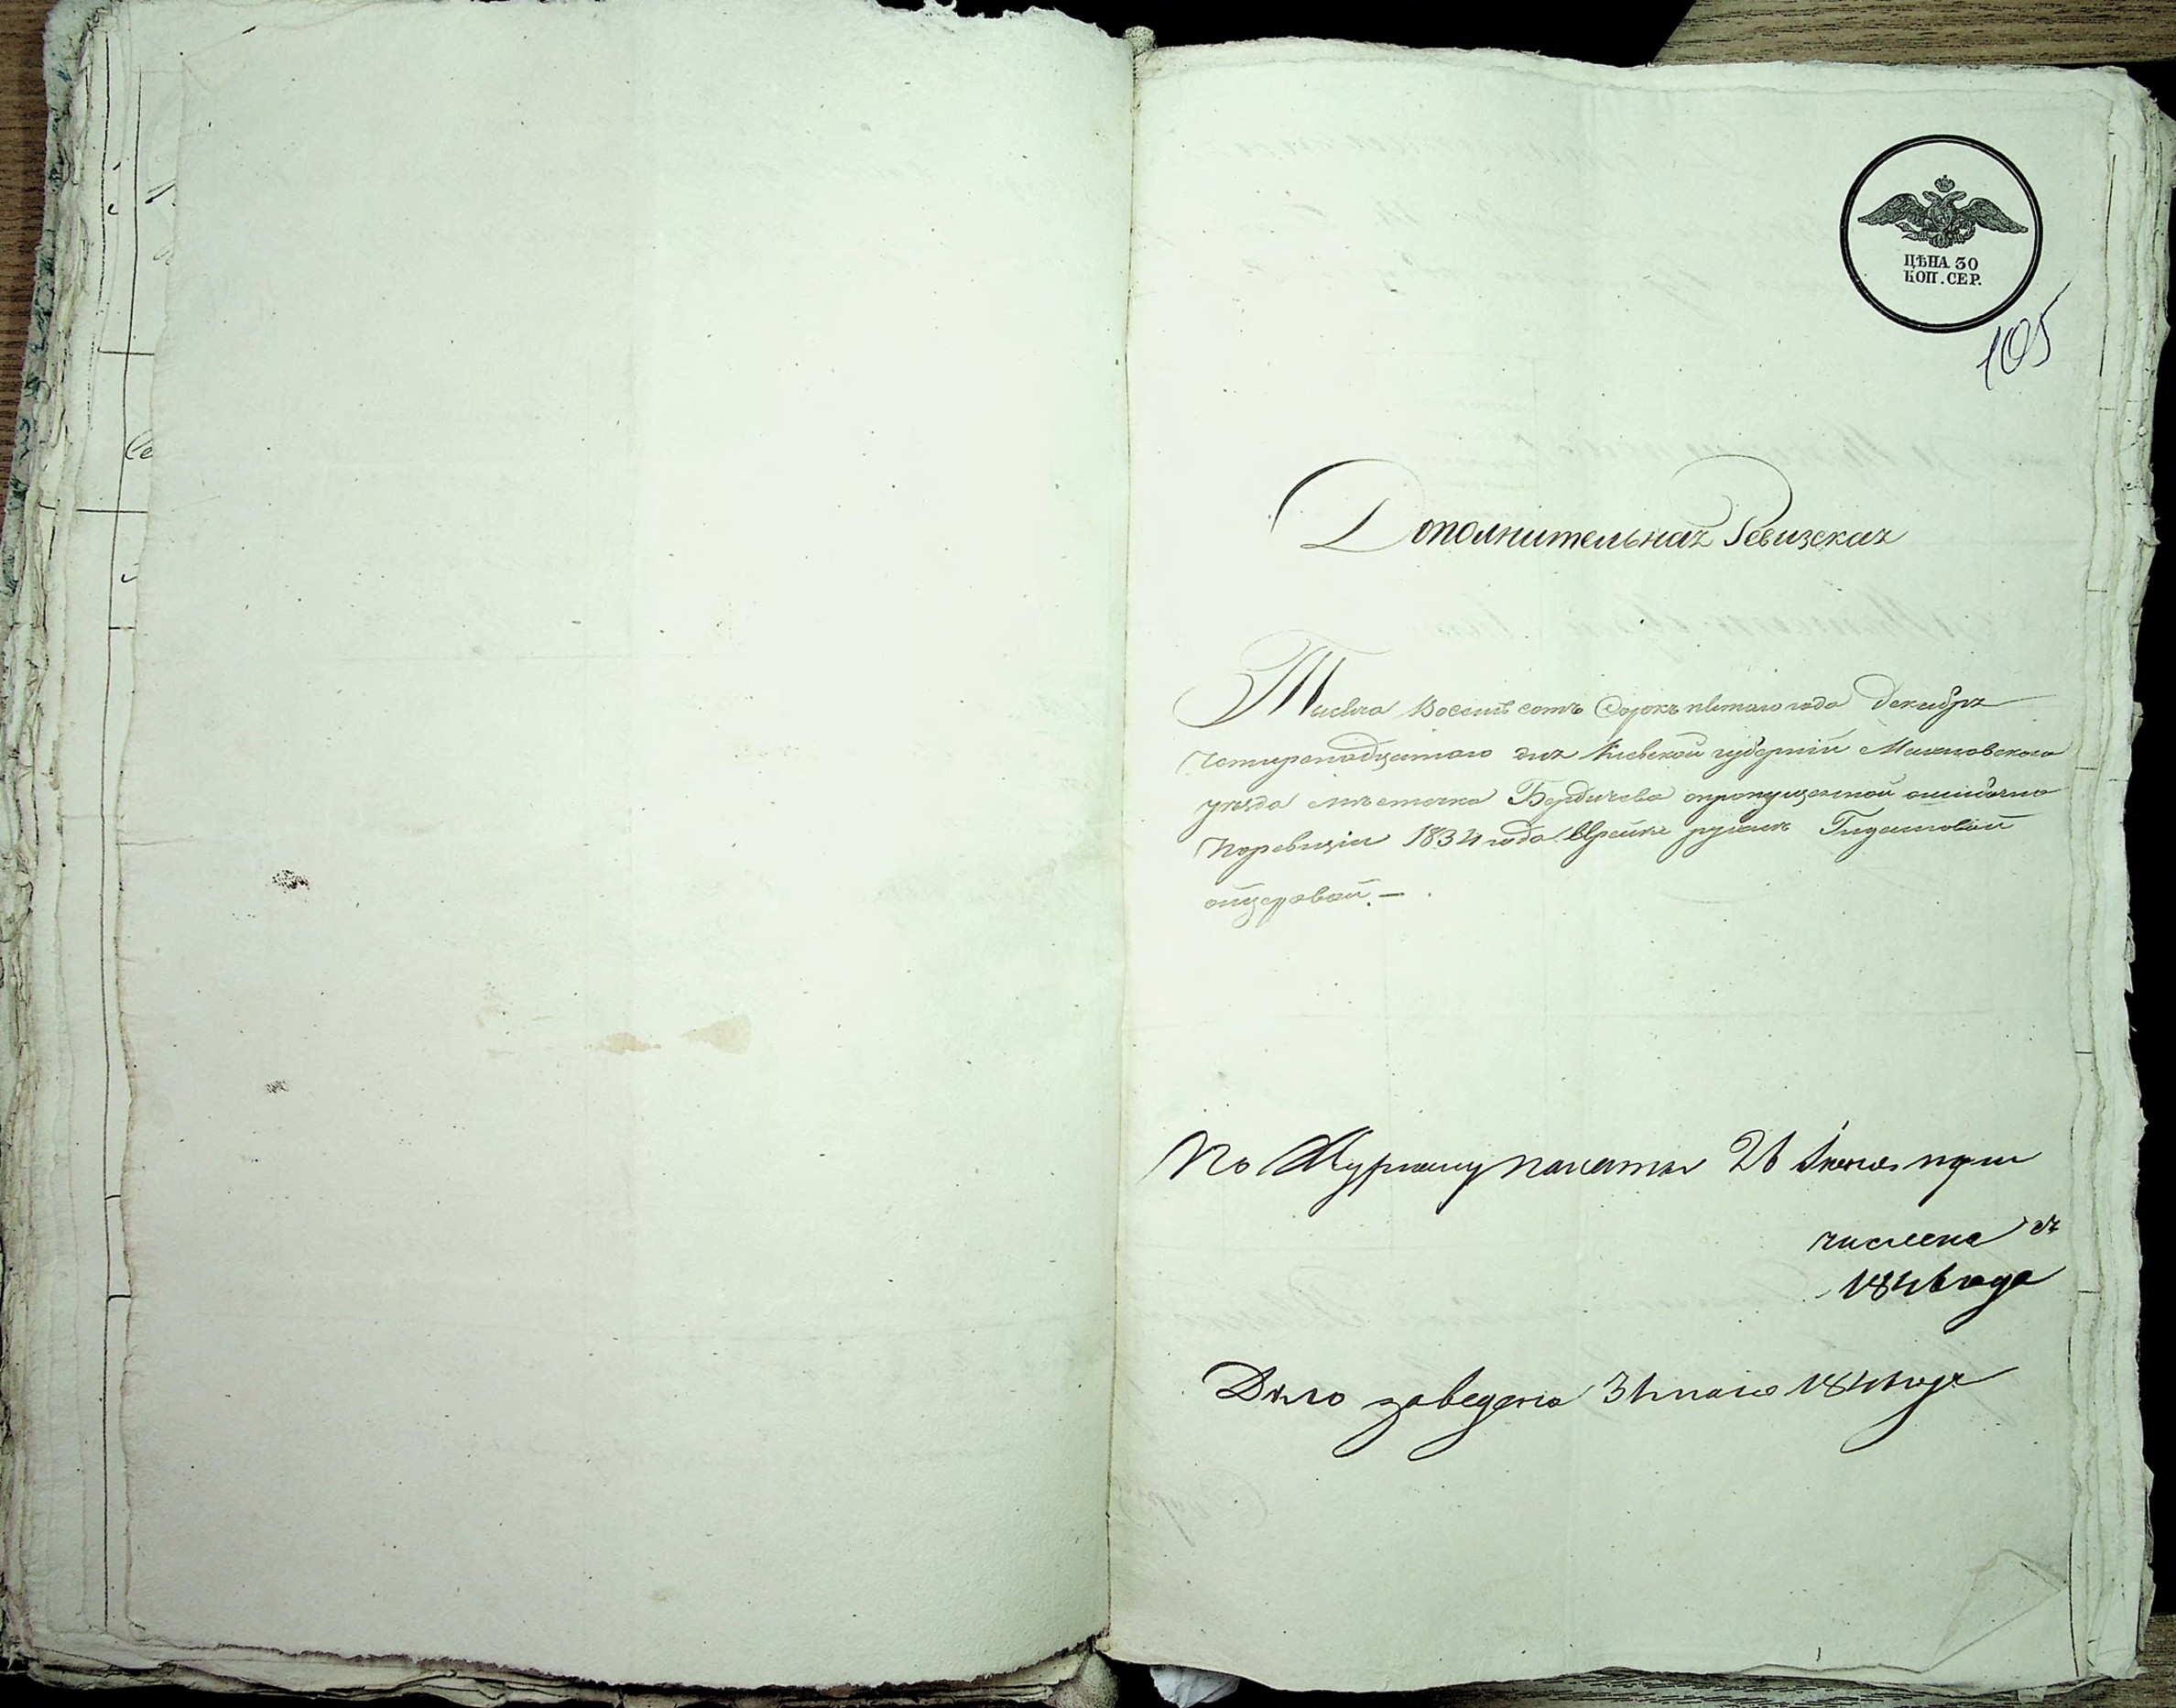 ЦѢНА 30
КОП. СЕР.
105
Дополнительная Ревизская
Тысяча Восемъ сотъ Сорокъ пятаго года Декабря
Четыренадцатаго дня Киевской губерніи Махновскаго
уѣзда мѣстечка Бердичева опропущенной ошибочно
Поревизіи 1834 года Еврейкѣ
По Журналу палаты 26 Іюня при
числена съ
1846 года
Дѣло заведено 31 маія 1846 года